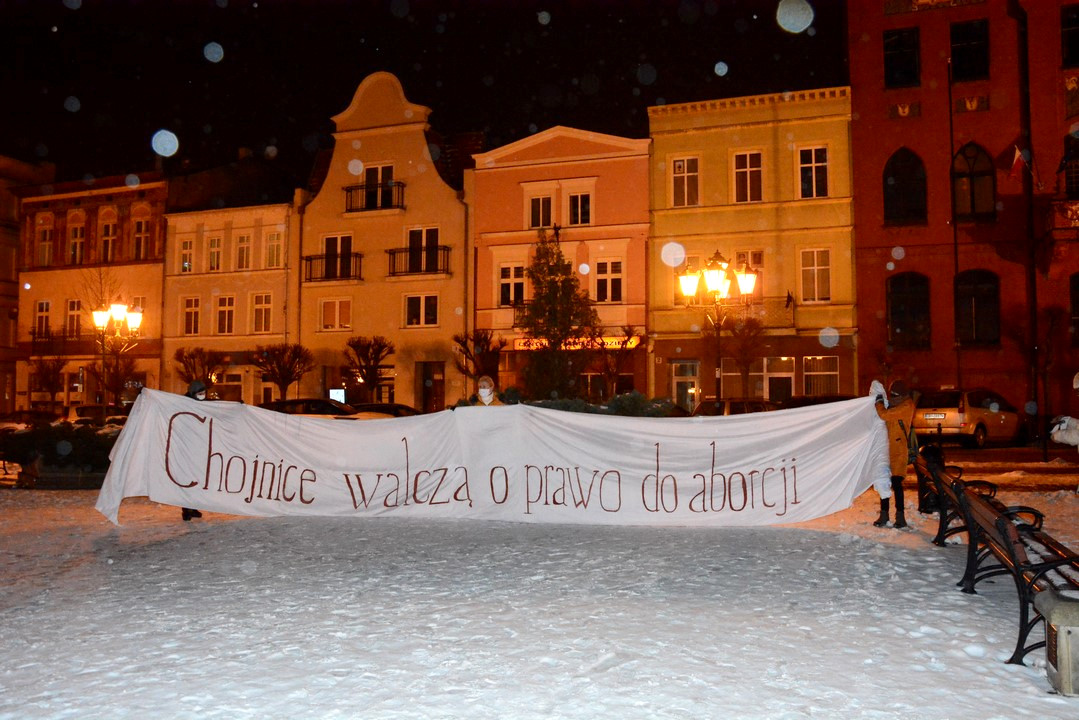 Chojnice walczą o prawo do aborcji